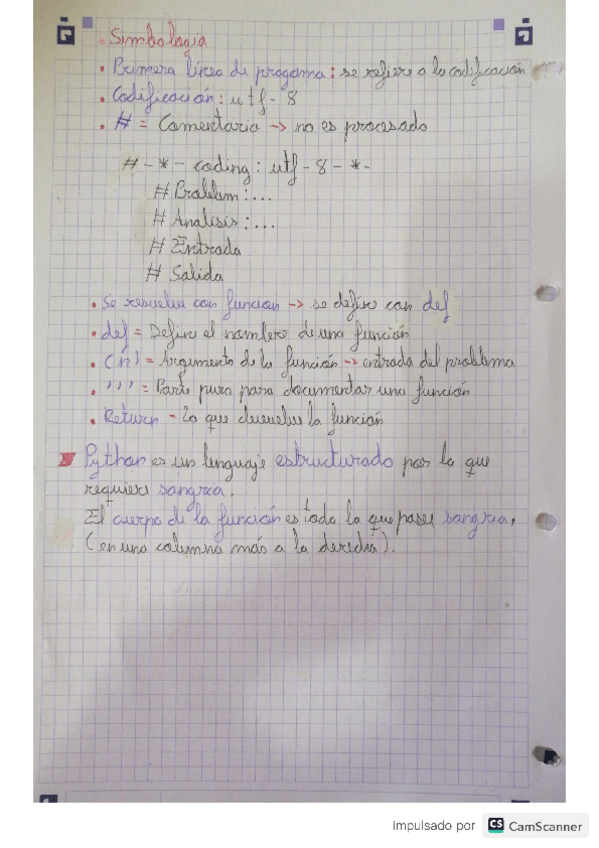 • Simbología
• Primera línea de progama: se refiere a la codificación
• Codificación: utf-8
• # = Comentario -> no es procesado
# -*- coding: utf-8 -*-
# Problem: ...
# Analisis: ...
# Entrada
# Salida
• Se resuelve con funcion -> se define con def
• def = Define el nombre de una función
• (n) = Argumento de la función -> entrada del problema
• ''' = Parte para documentar una función
• Return - Lo que devuelve la función
Python es un lenguaje estructurado por lo que
requiere sangría.
El cuerpo de la función es todo lo que posee sangría,
(en una columna más a la derecha).
Impulsado por CS CamScanner